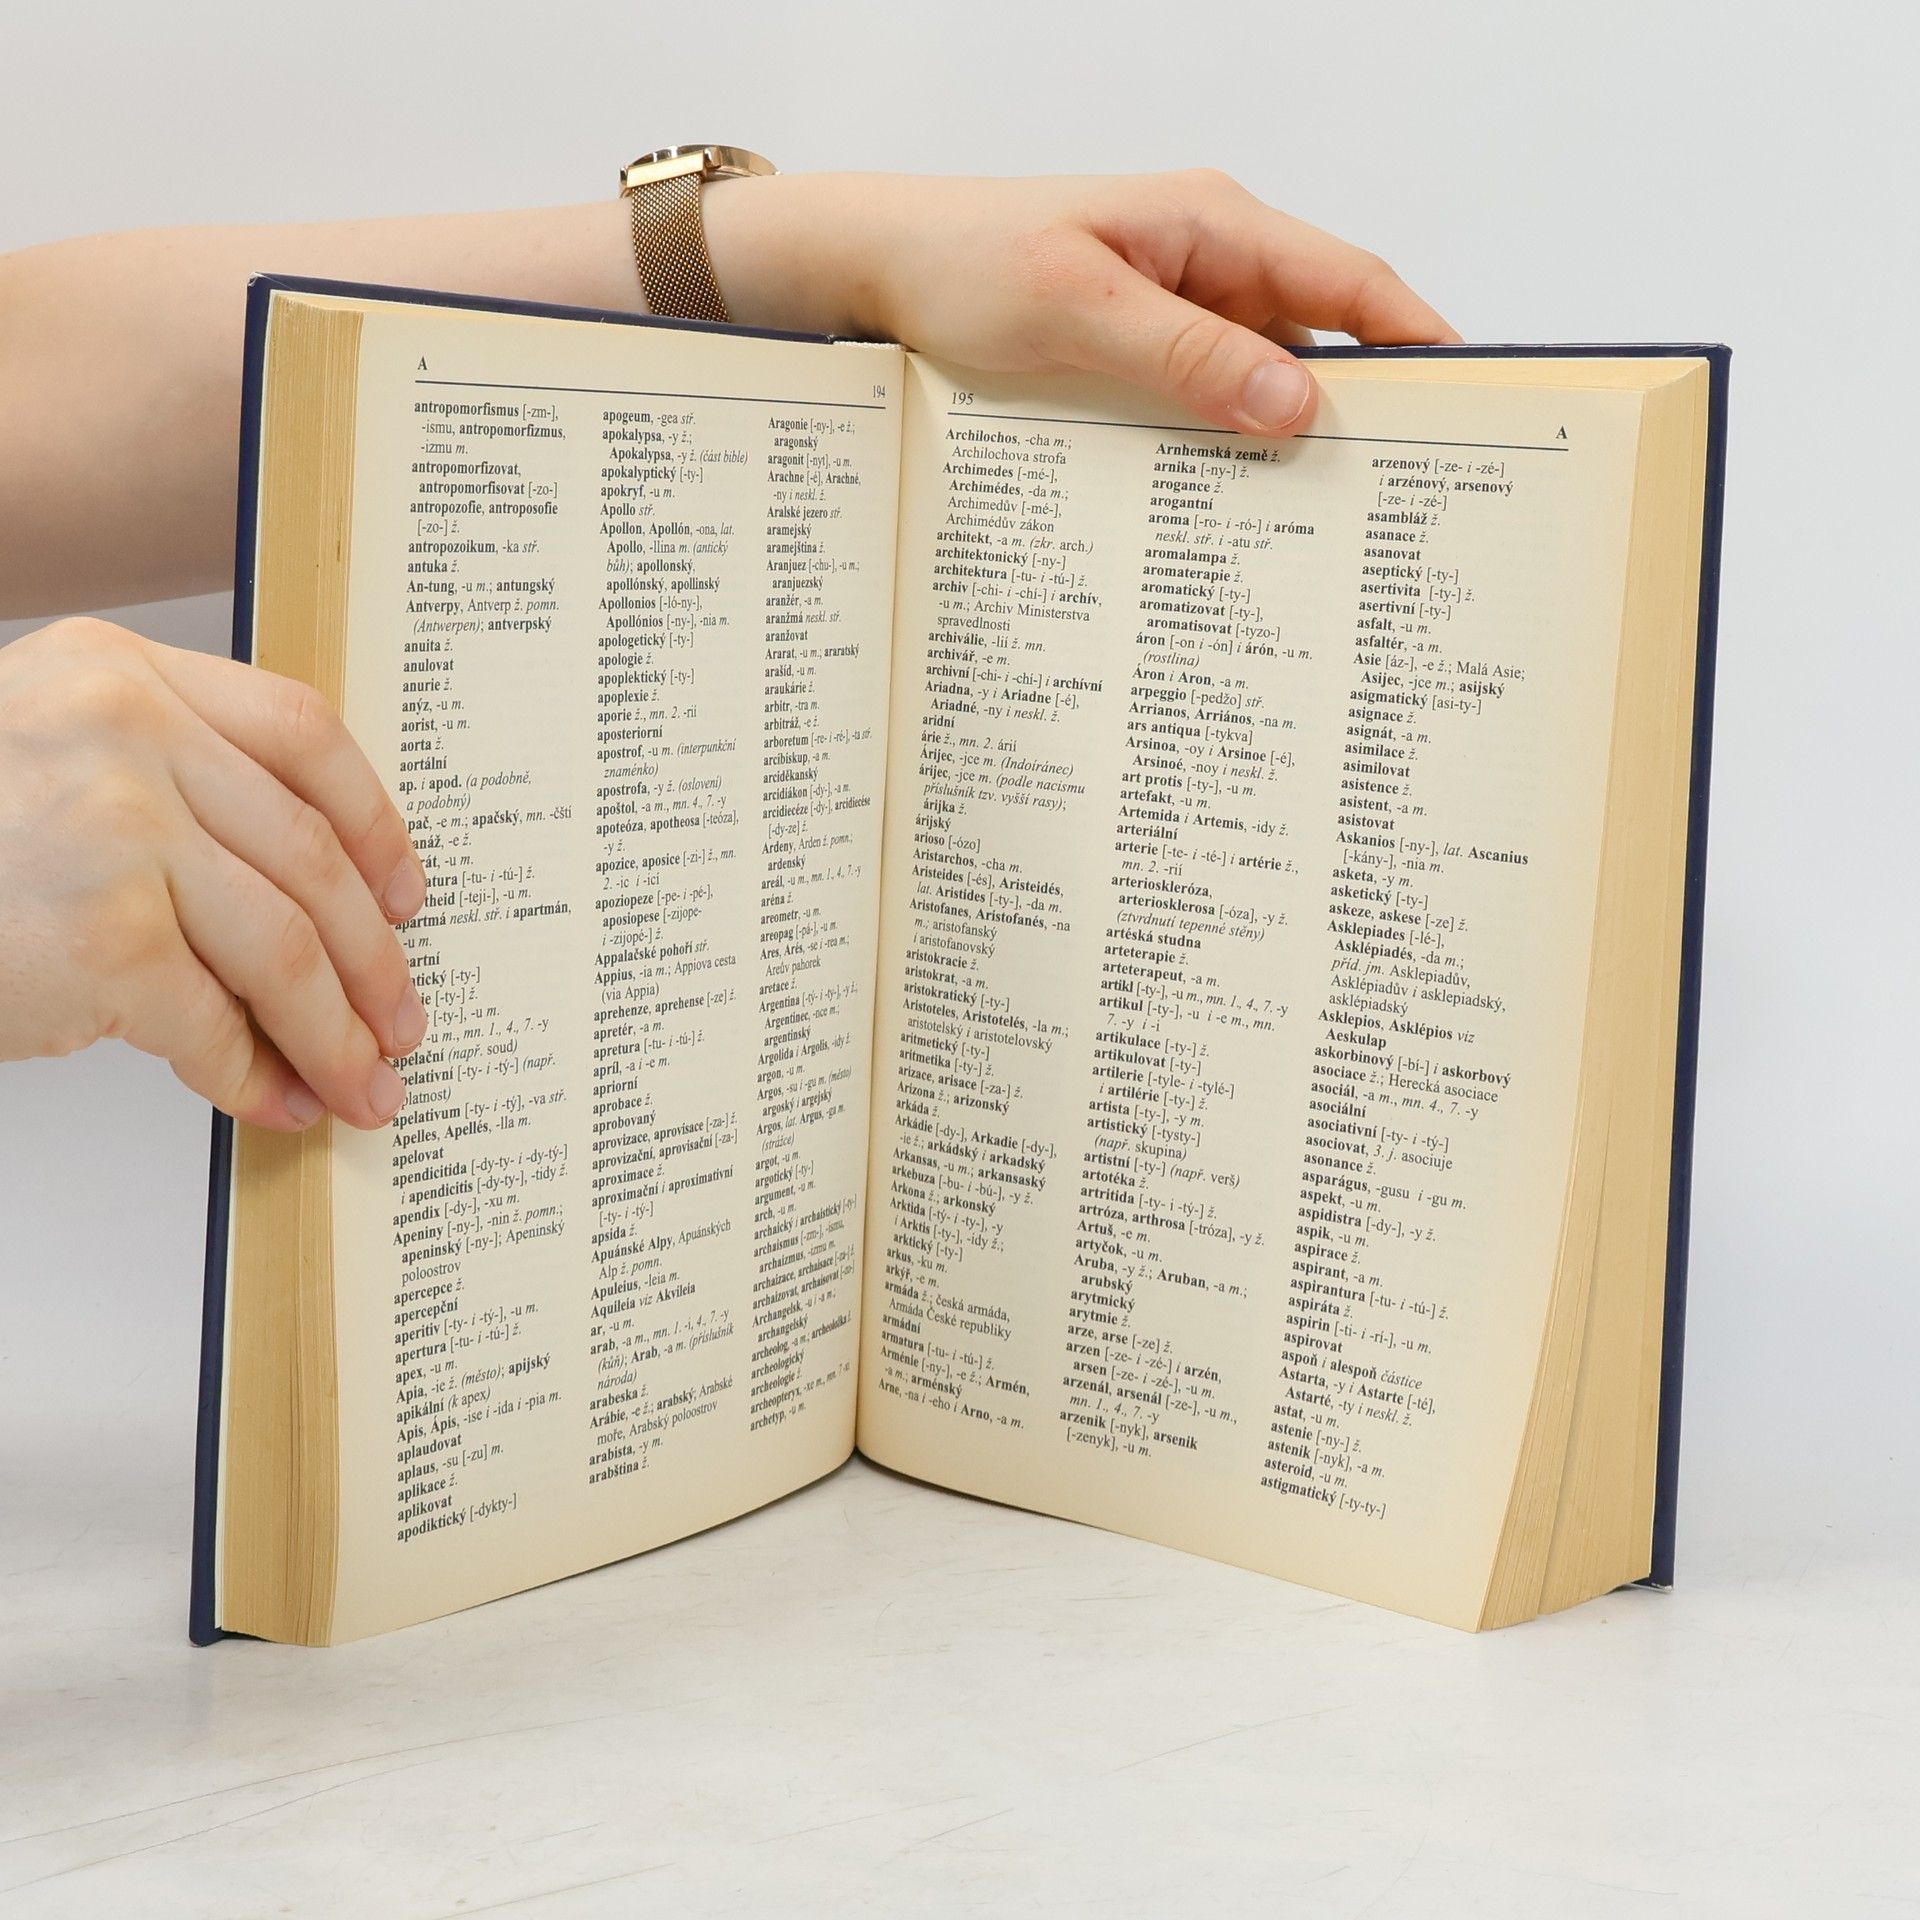 A
194
antropomorfismus [-zm-],
-ismu, antropomorfizmus,
-izmu m.
antropomorfizovat,
antropomorfisovat [-zo-]
antropozofie, antroposofie
[-zo-] ž.
antropozoikum, -ka stř.
antuka ž.
An-tung, -u m.; antungský
Antverpy, Antverp ž. pomn.
(Antwerpen); antverpský
anuita ž.
anulovat
anurie ž.
anýz, -u m.
aorist, -u m.
aorta ž.
aortální
ap. i apod. (a podobně,
a podobný)
pač, -e m.; apačský, mn. -čští
anáž, -e ž.
rát, -u m.
atura [-tu- i -tú-] ž.
theid [-teji-], -u m.
apartmá neskl. stř. i apartmán,
-u m.
artní
atický [-ty-]
ie [-ty-] ž.
[-ty-], -u m.
, -u m., mn. 1., 4., 7. -y
apelační (např. soud)
pelativní [-ty- i -tý-] (např.
platnost)
apelativum [-ty- i -tý], -va stř.
Apelles, Apellés, -lla m.
apelovat
apendicitida [-dy-ty- i -dy-tý-]
i apendicitis [-dy-ty-], -tidy ž.
apendix [-dy-], -xu m.
Apeniny [-ny-], -nin ž. pomn.;
apeninský [-ny-]; Apeninský
poloostrov
apercepce ž.
apercepční
aperitiv [-ty- i -tý-], -u m.
apertura [-tu- i -tú-] ž.
apex, -u m.
Apia, -ie ž. (město); apijský
apikální (k apex)
Apis, Ápis, -ise i -ida i -pia m.
aplaudovat
aplaus, -su [-zu] m.
aplikace ž.
aplikovat
apodiktický [-dykty-]
apogeum, -gea stř.
apokalypsa, -y ž.;
Apokalypsa, -y ž. (část bible)
apokalyptický [-ty-]
apokryf, -u m.
Apollo stř.
Apollon, Apollón, -ona, lat.
Apollo, -llina m. (antický
bůh); apollonský,
apollónský, apollinský
Apollonios [-ló-ny-],
Apollónios [-ny-], -nia m.
apologetický [-ty-]
apologie ž.
apoplektický [-ty-]
apoplexie ž.
aporie ž., mn. 2. -rií
aposteriorní
apostrof, -u m. (interpunkční
znaménko)
apostrofa, -y ž. (oslovení)
apoštol, -a m., mn. 4., 7. -y
apoteóza, apotheosa [-teóza],
-y ž.
apozice, aposice [-zi-] ž., mn.
2. -ic i -icí
apoziopeze [-pe- i -pé-],
aposiopese [-zijope-
i -zijopé-] ž.
Appalačské pohoří stř.
Appius, -ia m.; Appiova cesta
(via Appia)
aprehenze, aprehense [-ze] ž.
apretér, -a m.
apretura [-tu- i -tú-] ž.
apríl, -a i -e m.
apriorní
aprobace ž.
aprobovaný
aprovizace, aprovisace [-za-] ž.
aprovizační, aprovisační [-za-]
aproximace ž.
aproximační i aproximativní
[-ty- i -tý-]
apsida ž.
Apuánské Alpy, Apuánských
Alp ž. pomn.
Apuleius, -leia m.
Aquileia viz Akvileia
ar, -u m.
arab, -a m., mn. 1. -i, 4., 7. -y
(kůň); Arab, -a m. (příslušník
národa)
arabeska ž.
Arábie, -e ž.; arabský; Arabské
moře, Arabský poloostrov
arabista, -y m.
arabština ž.
Aragonie [-ny-], -e ž.;
aragonský
aragonit [-nyt], -u m.
Arachne [-é], Arachné,
-ny i neskl. ž.
Aralské jezero stř.
aramejský
aramejština ž.
Aranjuez [-chu-], -u m.;
aranjuezský
aranžér, -a m.
aranžmá neskl. stř.
aranžovat
Ararat, -u m.; araratský
arašíd, -u m.
araukárie ž.
arbitr, -tra m.
arbitráž, -e ž.
arboretum [-re- i -ré-], -ta stř.
arcibiskup, -a m.
arciděkanský
arcidiákon [-dy-], -a m.
arcidiecéze [-dy-], arcidiecése
[-dy-ze] ž.
Ardeny, Arden ž. pomn.;
ardenský
areál, -u m., mn. 1., 4., 7. -y
aréna ž.
areometr, -u m.
areopag [-pá-], -u m.
Ares, Arés, -se i -rea m.;
Areův pahorek
aretace ž.
Argentina [-tý- i -ty-], -y ž.;
Argentinec, -nce m.;
argentinský
Argolida i Argolis, -idy ž.
argon, -u m.
Argos, -su i -gu m. (město)
argoský i argejský
Argos, lat. Argus, -ga m.
(strážce)
argot, -u m.
argotický [-ty-]
argument, -u m.
arch, -u m.
archaický i archaistický [-ty-]
archaismus [-zm-], -ismu,
archaizmus, -izmu m.
archaizace, archaisace [-za-] ž.
archaizovat, archaisovat [-zo-]
Archangelsk, -u i -a m.;
archangelský
archeolog, -a m.; archeoložka ž.
archeologický
archeologie ž.
archeopteryx, -xe m., mn. 7. -xi
archetyp, -u m.
195
A
Archilochos, -cha m.;
Archilochova strofa
Archimedes [-mé-],
Archimédes, -da m.;
Archimedův [-mé-],
Archimédův zákon
architekt, -a m. (zkr. arch.)
architektonický [-ny-]
architektura [-tu- i -tú-] ž.
archiv [-chi- i -chí-] i archív,
-u m.; Archiv Ministerstva
spravedlnosti
archiválie, -lií ž. mn.
archivář, -e m.
archivní [-chi- i -chí-] i archívní
Ariadna, -y i Ariadne [-é],
Ariadné, -ny i neskl. ž.
aridní
árie ž., mn. 2. árií
Árijec, -jce m. (Indoíránec)
árijec, -jce m. (podle nacismu
příslušník tzv. vyšší rasy);
árijka ž.
árijský
arioso [-ózo]
Aristarchos, -cha m.
Aristeides [-és], Aristeidés,
lat. Aristides [-ty-], -da m.
Aristofanes, Aristofanés, -na
m.; aristofanský
i aristofanovský
aristokracie ž.
aristokrat, -a m.
aristokratický [-ty-]
Aristoteles, Aristotelés, -la m.;
aristotelský i aristotelovský
aritmetický [-ty-]
aritmetika [-ty-] ž.
arizace, arisace [-za-] ž.
Arizona ž.; arizonský
arkáda ž.
Arkádie [-dy-], Arkadie [-dy-],
-ie ž.; arkádský i arkadský
Arkansas, -u m.; arkansaský
arkebuza [-bu- i -bú-], -y ž.
Arkona ž.; arkonský
Arktida [-tý- i -ty-], -y
i Arktis [-ty-], -idy ž.;
arktický [-ty-]
arkus, -ku m.
arkýř, -e m.
armáda ž.; česká armáda,
Armáda České republiky
armádní
armatura [-tu- i -tú-] ž.
Arménie [-ny-], -e ž.; Armén,
-a m.; arménský
Arne, -na i -eho i Arno, -a m.
Arnhemská země ž.
arnika [-ny-] ž.
arogance ž.
arogantní
aroma [-ro- i -ró-] i aróma
neskl. stř. i -atu stř.
aromalampa ž.
aromaterapie ž.
aromatický [-ty-]
aromatizovat [-ty-],
aromatisovat [-tyzo-]
áron [-on i -ón] i árón, -u m.
(rostlina)
Áron i Aron, -a m.
arpeggio [-pedžo] stř.
Arrianos, Arriános, -na m.
ars antiqua [-tykva]
Arsinoa, -oy i Arsinoe [-é],
Arsinoé, -noy i neskl. ž.
art protis [-ty-], -u m.
artefakt, -u m.
Artemida i Artemis, -idy ž.
arteriální
arterie [-te- i -té-] i artérie ž.,
mn. 2. -rií
arterioskleróza,
arteriosklerosa [-óza], -y ž.
(ztvrdnutí tepenné stěny)
artéská studna
arteterapie ž.
arteterapeut, -a m.
artikl [-ty-], -u m., mn. 1., 4., 7. -y
artikul [-ty-], -u i -e m., mn.
7. -y i -i
artikulace [-ty-] ž.
artikulovat [-ty-]
artilerie [-tyle- i -tylé-]
i artilérie [-ty-] ž.
artista [-ty-], -y m.
artistický [-tysty-]
(např. skupina)
artistní [-ty-] (např. verš)
artotéka ž.
artritida [-ty- i -tý-] ž.
artróza, arthrosa [-tróza], -y ž.
Artuš, -e m.
artyčok, -u m.
Aruba, -y ž.; Aruban, -a m.;
arubský
arytmický
arytmie ž.
arze, arse [-ze] ž.
arzen [-ze- i -zé-] i arzén,
arsen [-ze- i -zé-], -u m.
arzenál, arsenál [-ze-], -u m.,
mn. 1., 4., 7. -y
arzenik [-nyk], arsenik
[-zenyk], -u m.
arzenový [-ze- i -zé-]
i arzénový, arsenový
[-ze- i -zé-]
asambláž ž.
asanace ž.
asanovat
aseptický [-ty-]
asertivita [-ty-] ž.
asertivní [-ty-]
asfalt, -u m.
asfaltér, -a m.
Asie [áz-], -e ž.; Malá Asie;
Asijec, -jce m.; asijský
asigmatický [asi-ty-]
asignace ž.
asignát, -a m.
asimilace ž.
asimilovat
asistence ž.
asistent, -a m.
asistovat
Askanios [-ny-], lat. Ascanius
[-kány-], -nia m.
asketa, -y m.
asketický [-ty-]
askeze, askese [-ze] ž.
Asklepiades [-lé-],
Asklépiadés, -da m.;
příd. jm. Asklepiadův,
Asklépiadův i asklepiadský,
asklépiadský
Asklepios, Asklépios viz
Aeskulap
askorbinový [-bí-] i askorbový
asociace ž.; Herecká asociace
asociál, -a m., mn. 4., 7. -y
asociální
asociativní [-ty- i -tý-]
asociovat, 3. j. asociuje
asonance ž.
asparágus, -gusu i -gu m.
aspekt, -u m.
aspidistra [-dy-], -y ž.
aspik, -u m.
aspirace ž.
aspirant, -a m.
aspirantura [-tu- i -tú-] ž.
aspiráta ž.
aspirin [-ti- i -rí-], -u m.
aspirovat
aspoň i alespoň částice
Astarta, -y i Astarte [-té],
Astarté, -ty i neskl. ž.
astat, -u m.
astenie [-ny-] ž.
astenik [-nyk], -a m.
asteroid, -u m.
astigmatický [-ty-ty-]